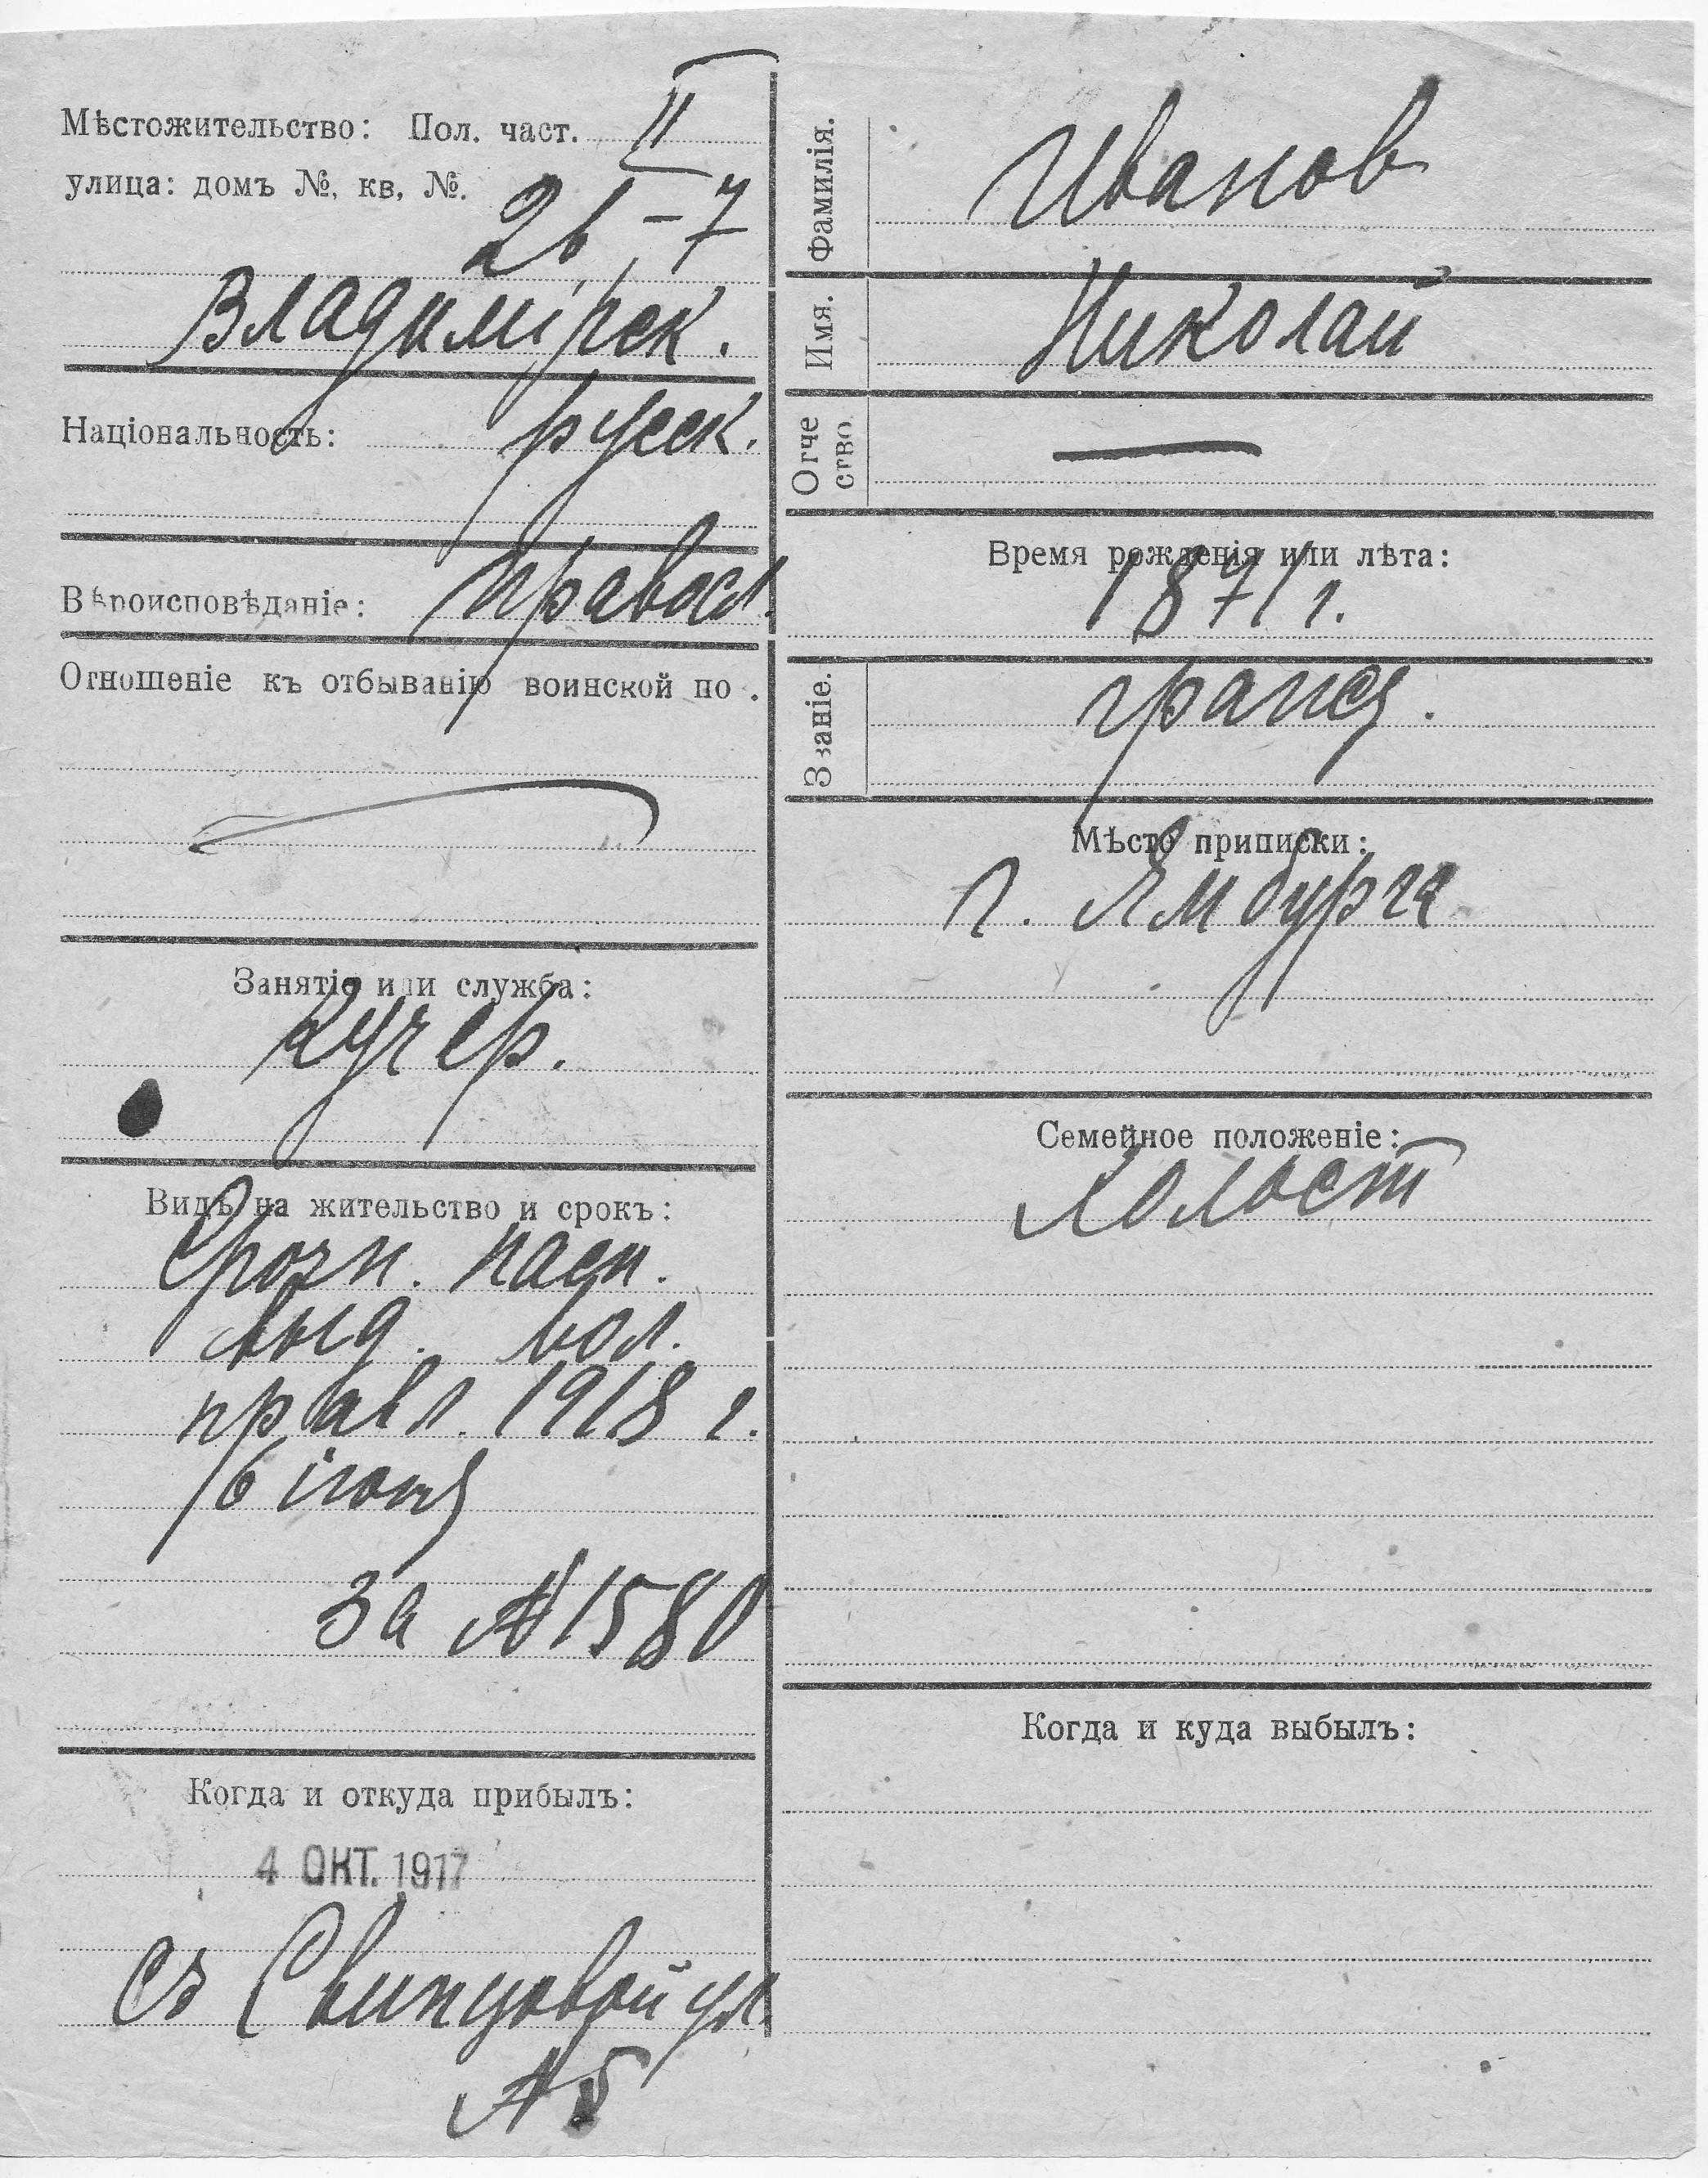 Мѣстожительство: Пол. част. II
улица: домъ №, кв, №.
26-7
Владимірск.
Національность: русск.
Вѣроисповѣданіе: правосл.
Отношеніе къ отбыванію воинской по .
Занятіе или служба:
Кучер.
Видъ на жительство и срокъ:
Срочн. пасп.
выд. вол.
правл. 1918 г.
16 іюня
за № 1580
Когда и откуда прибылъ:
4 ОКТ. 1917
съ Свинцовой ул.
№ 5
Фамилія. Иванов
Имя. Николай
Отче
ство. —
Время рожденія или лѣта:
1871 г.
Званіе. гражд.
Мѣсто приписки:
г. Ямбурга
Семейное положеніе:
Холост
Когда и куда выбылъ: